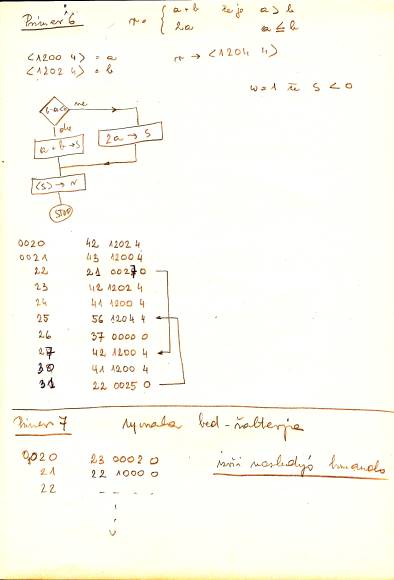 Primer 6
r = { a+b če je a > b
2a a ≤ b
<1200 4> = a r → <1204 4>
<1202 4> = b
w=1 če S < 0
b-a<0 ne
da
a+b→S 2a→S
(S)→r
STOP
0020 42 1202 4
0021 43 1200 4
22 21 0027 0
23 42 1202 4
24 41 1200 4
25 56 1204 4
26 37 0000 0
27 42 1200 4
30 41 1200 4
31 22 0025 0
Primer 7
0020 23 0002 0
21 22 1000 0
22 - - - -